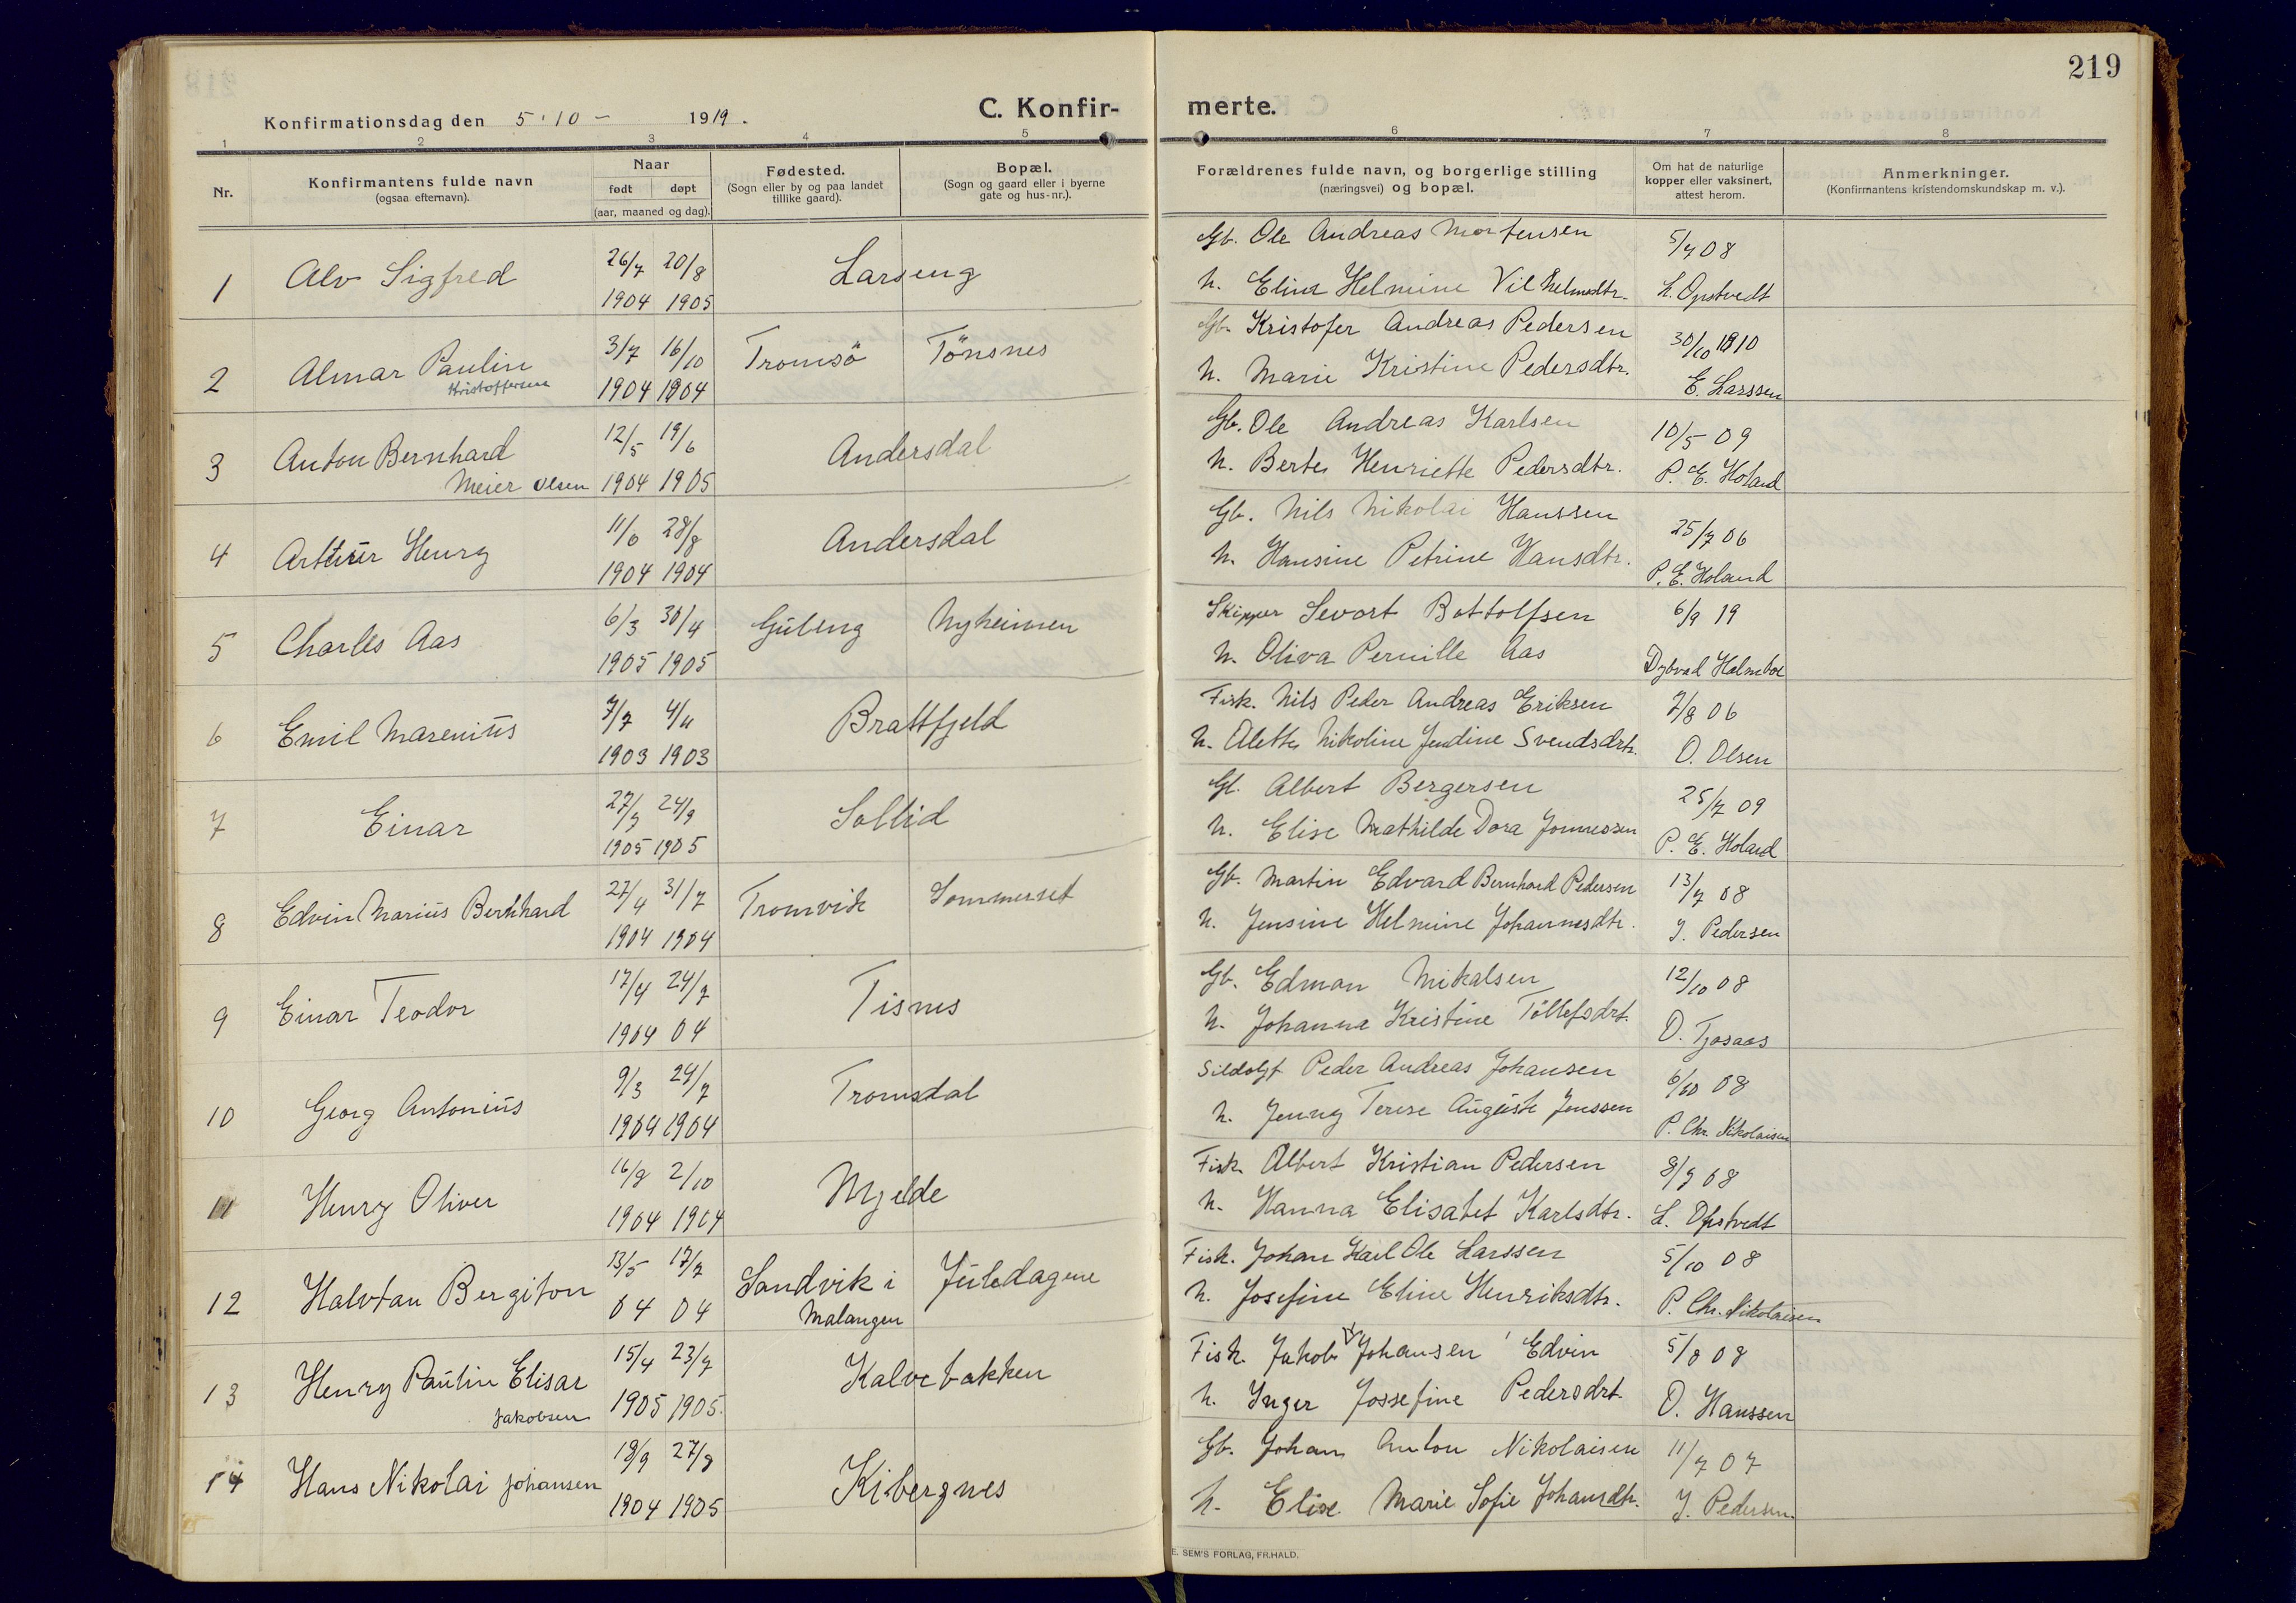 219
Konfirmationsdag den 5.10 – 1919.
C. Konfir-
merte.
1 2 3 4 5 6 7 8
Nr.
Konfirmantens fulde navn
(ogsaa efternavn).
Naar
født døpt
(aar, maaned og dag).
Fødested.
(Sogn eller by og paa landet
tillike gaard).
Bopæl.
(Sogn og gaard eller i byerne
gate og hus-nr.).
Forældrenes fulde navn, og borgerlige stilling
(næringsvei) og bopæl.
Om hat de naturlige
kopper eller vaksinert,
attest herom.
Anmerkninger.
(Konfirmantens kristendomskundskap m. v.).
1 Alv Sigfred 26/7 20/8 Larseng Gb. Ole Andreas Mortensen 5/7 08
1904 1905 h. Elina Helmine Vilhelmsdtr. L. Opstvedt
2 Almar Paulin 3/7 16/10 Tromsö Tönsnes Gb. Kristofer Andreas Pedersen 30/10 1910
Kristoffersen 1904 1904 h. Marie Kristine Pedersdtr. E. Larssen
3 Anton Bernhard 12/5 19/6 Andersdal Gb. Ole Andreas Karlsen 10/5 09
Meier Olsen 1904 1905 h. Berte Henriette Pedersdtr. P. E. Holand
4 Artur Henry 11/6 28/8 Andersdal Gb. Nils Nikolai Hanssen 25/7 06
1904 1904 h. Hansine Petrine Hansdtr. P. E. Holand
5 Charles Aas 6/3 30/4 Guleng Nyheimen Skipper Sevart Bottolfsen 6/9 19
1905 1905 h. Oliva Pernille Aas Dybvad Holmboe
6 Emil Marenius 7/7 4/11 Brattfjeld Fisk. Nils Peder Andreas Eriksen 7/8 06
1903 1903 h. Alette Nikoline Jendine Svendsdtr. O. Olsen
7 Einar 27/3 24/9 Sollid Gb. Albert Bergersen 25/7 09
1905 1905 h. Elise Mathilde Dora Jonnessen P. E. Holand
8 Edvin Marius Bernhard 27/4 31/7 Tromvik Sommerset Gb. Martin Edvard Bernhard Pedersen 13/7 08
1904 1904 h. Jensine Helmine Johannesdtr. J. Pedersen
9 Einar Teodor 17/4 24/7 Tisnes Gb. Edman Mikalsen 12/10 08
1904 04 h. Johanna Kristine Tollefsdrt. O. Tjosaas
10 Georg Antonius 9/3 24/7 Tromsdal Peder Andreas Johansen 6/10 08
1904 1904 h. Jenny Terese Auguste Jenssen P. Chr. Nikolaisen
11 Henry Oliver 16/8 2/10 Mjelde Fisk. Albert Kristian Pedersen 8/9 08
1904 1904 h. Hanna Elisabet Karlsdtr. L. Opstvedt
12 Halvtan Bergiton 13/5 17/7 Sandvik i Juledagene Fisk. Johan Karl Ole Larssen 5/10 08
04 04 Malangen h. Josefine Eline Henriksdtr. P. Chr. Nikolaisen
13 Henry Paulin Elisar 15/4 23/7 Kalvebakken Fisk. Jakob Johansen Edvin 5/8 08
Jakobsen 1905 1905. h. Inger Jossefine Pedersdrt. O. Hanssen
14 Hans Nikolai Johansen 18/9 27/8 Kibergnes Gb. Johan Anton Nikolaisen 11/7 07
1904 1905 h. Elise Marie Sofie Johansdtr. J. Pedersen
E. SEM'S FORLAG, FR.HALD.